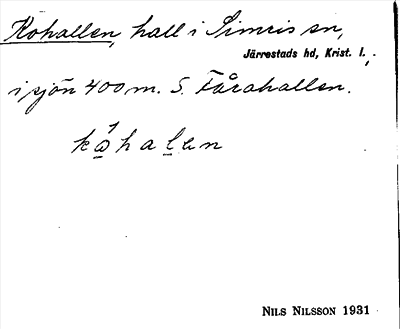 Kohallen, hall i Simris sn,
Järrestads hd, Krist. l.,
i sjön 400 m. S. Fårahallen.
kåhalen
NILS NILSSON 1931